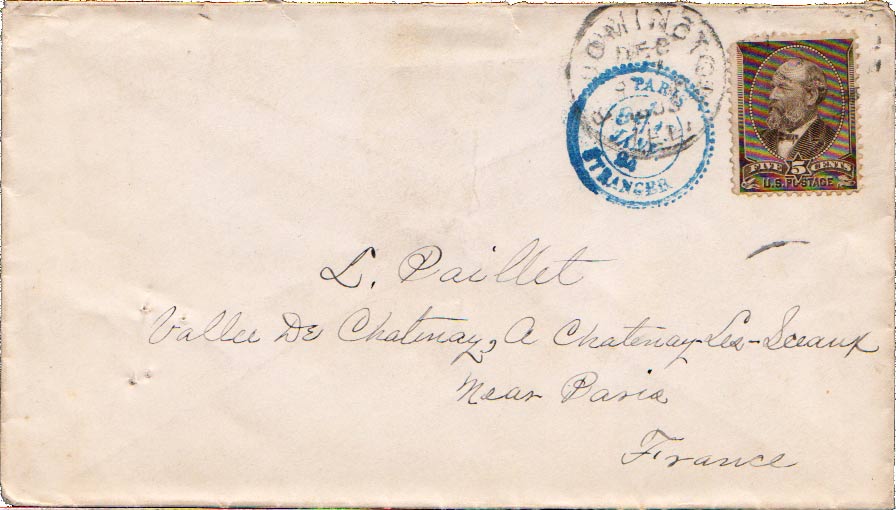 BLOOMINGTON
DEC
PARIS
JANV
84
ETRANGER
FIVE 5 CENTS
U.S. POSTAGE
L. Paillet
Vallee De Chatenay, A Chatenay-Les-Sceaux
Near Paris
France